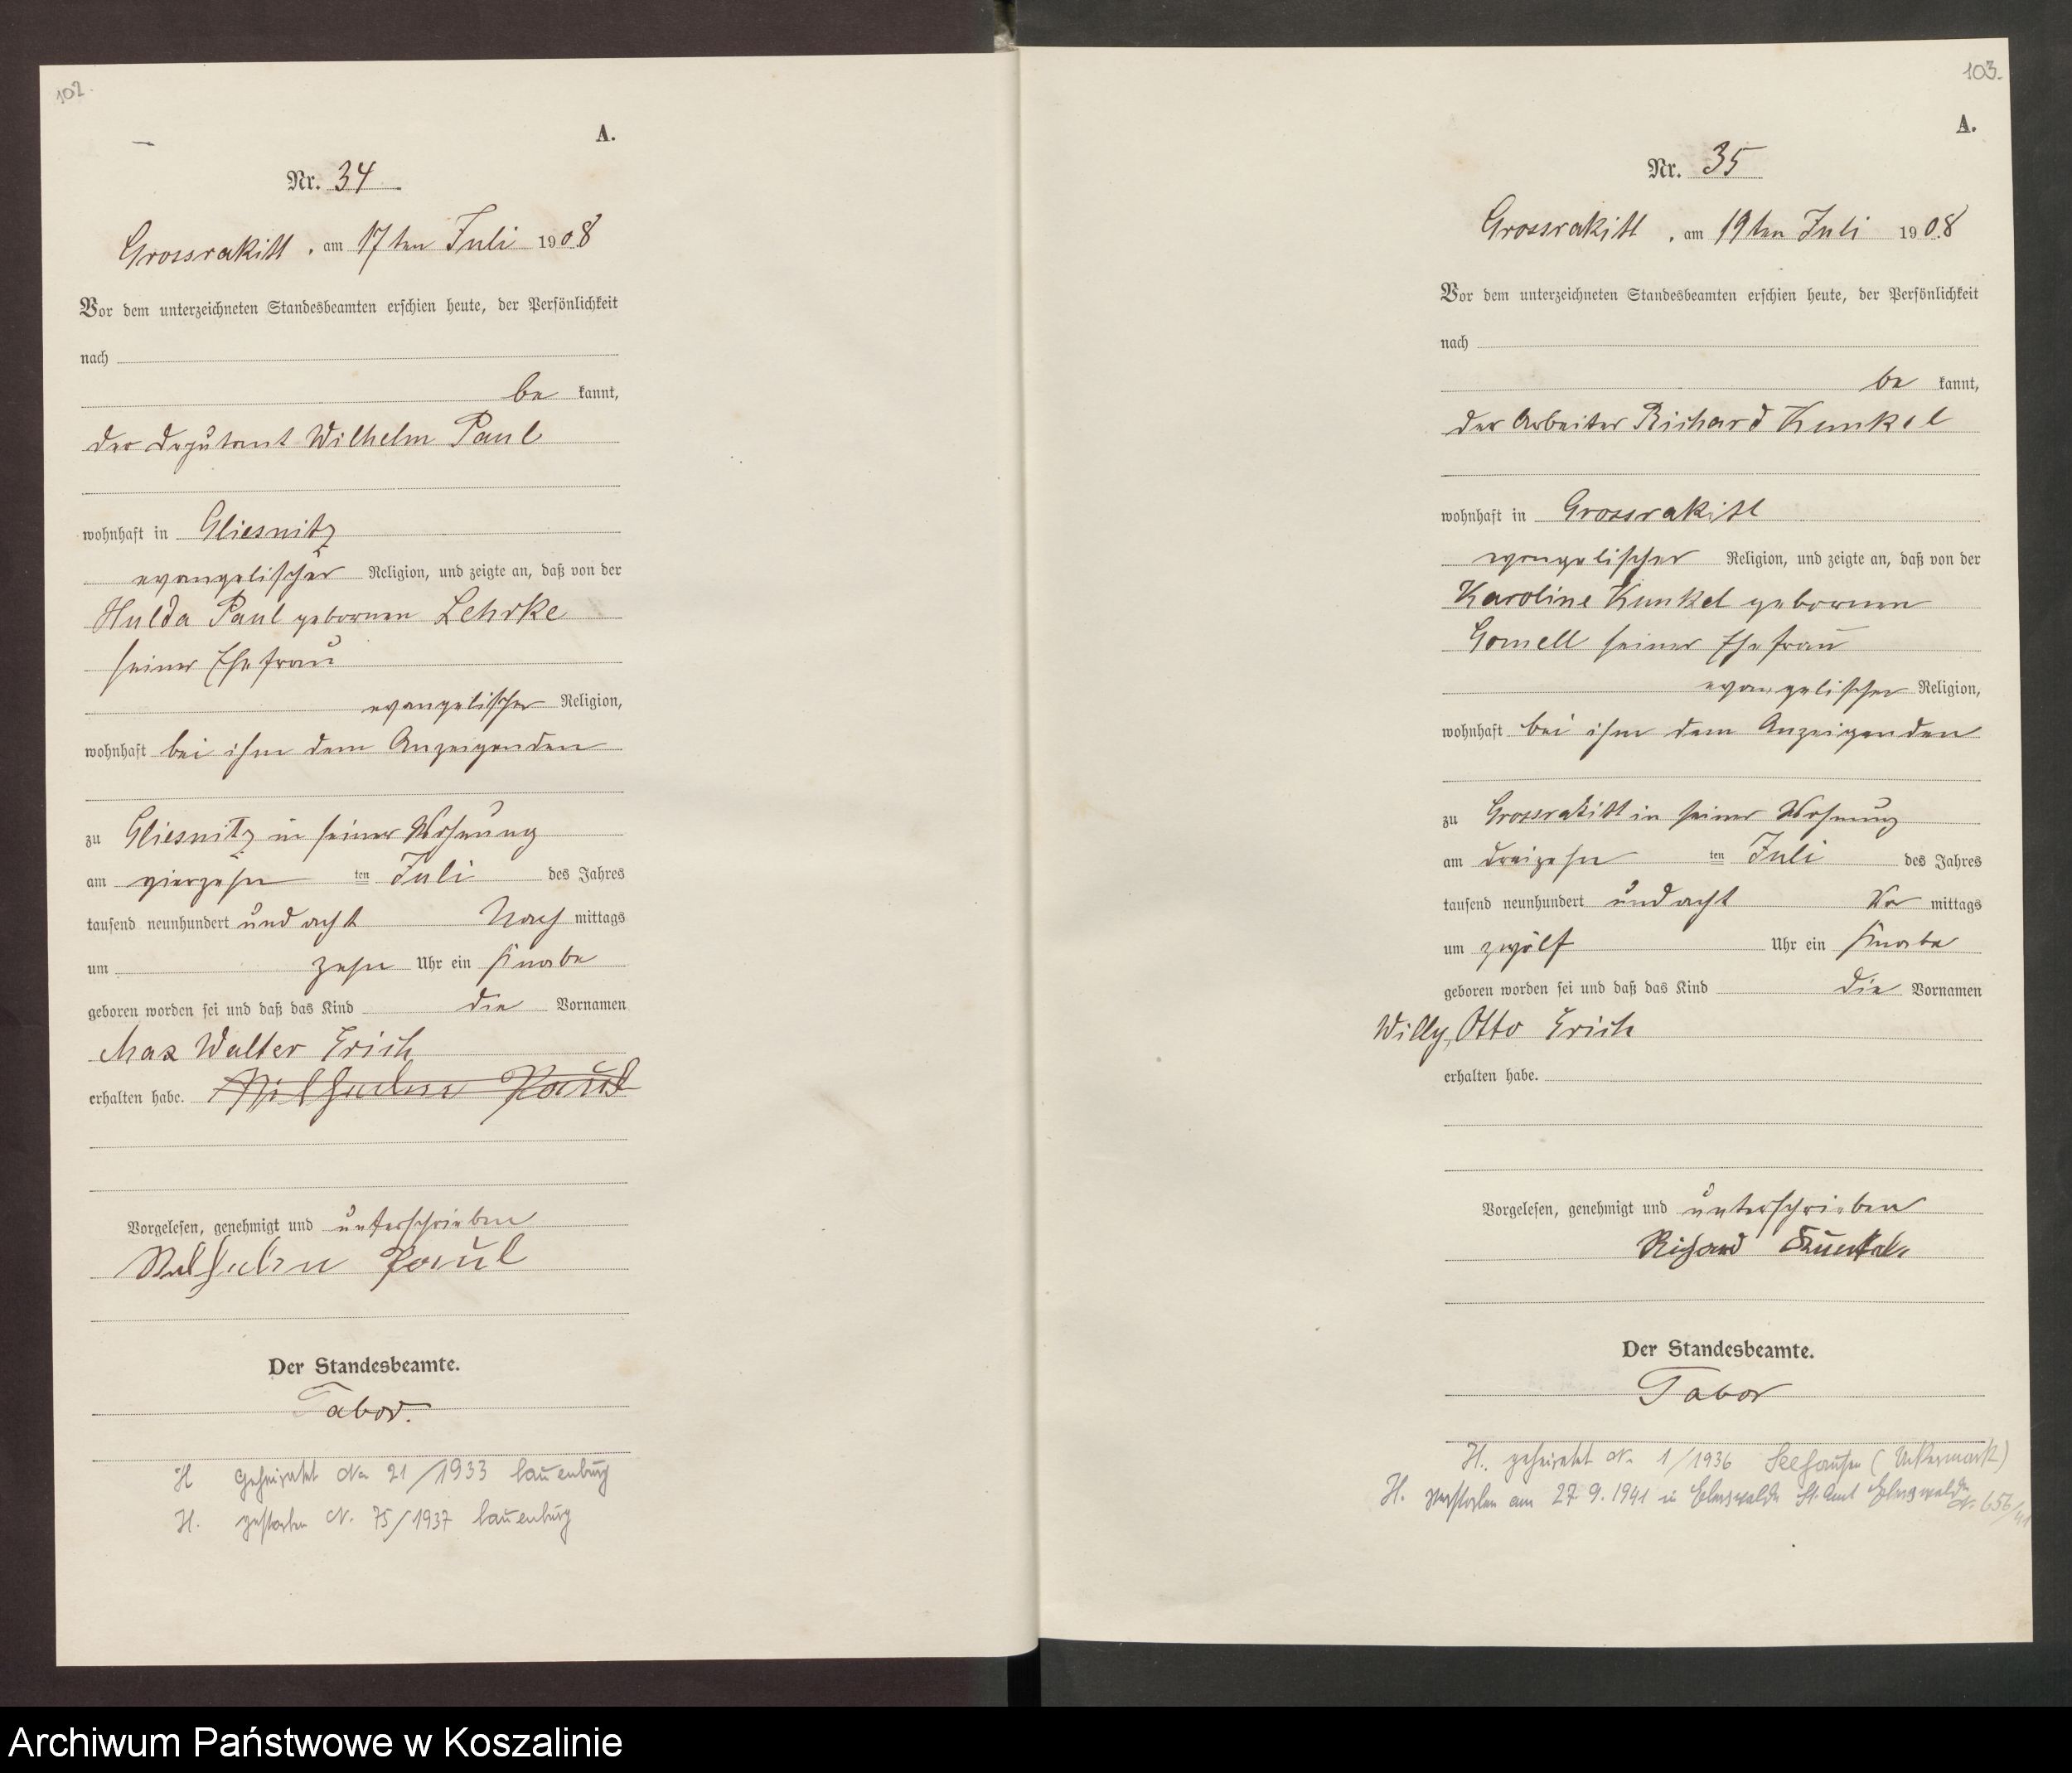 102.
A.
Nr. 34
Grossrakitt, am 17ten Juli 1908
Vor dem unterzeichneten Standesbeamten erschien heute, der Persönlichkeit
nach
be kannt,
der Deputant Wilhelm Paul
wohnhaft in Gliesnitz
evangelischer Religion, und zeigte an, daß von der
Hulda Paul gebornen Lehrke
seiner Ehefrau
evangelischer Religion,
wohnhaft bei ihm dem Anzeigenden
zu Gliesnitz in seiner Wohnung
am vierzehn ten Juli des Jahres
tausend neunhundert und acht Nach mittags
um zehn Uhr ein Knabe
geboren worden sei und daß das Kind die Vornamen
Max Walter Erich
erhalten habe. Wilhelm Paul
Vorgelesen, genehmigt und unterschrieben
Wilhelm Paul
Der Standesbeamte.
Tabor.
H geheiratet No 21/1933 Lauenburg
H. gestorben N. 75/1937 Lauenburg
103.
A.
Nr. 35
Grossrakitt, am 19ten Juli 1908
Vor dem unterzeichneten Standesbeamten erschien heute, der Persönlichkeit
nach
be kannt,
der Arbeiter Richard Kunkel
wohnhaft in Grossrakitt
evangelischer Religion, und zeigte an, daß von der
Karoline Kunkel gebornen
Gomell seiner Ehefrau
evangelischer Religion,
wohnhaft bei ihm dem Anzeigenden
zu Grossrakitt in seiner Wohnung
am dreizehn ten Juli des Jahres
tausend neunhundert und acht Vor mittags
um zwölf Uhr ein Knabe
geboren worden sei und daß das Kind die Vornamen
Willy, Otto Erich
erhalten habe.
Vorgelesen, genehmigt und unterschrieben
Richard Kunkel.
Der Standesbeamte.
Tabor
H. geheiratet N. 1/1936 Seehausen (Uckermark)
H. verstorben am 27.9.1941 in Eberswalde St. Amt Eberswalde N. 656/41
Archiwum Państwowe w Koszalinie